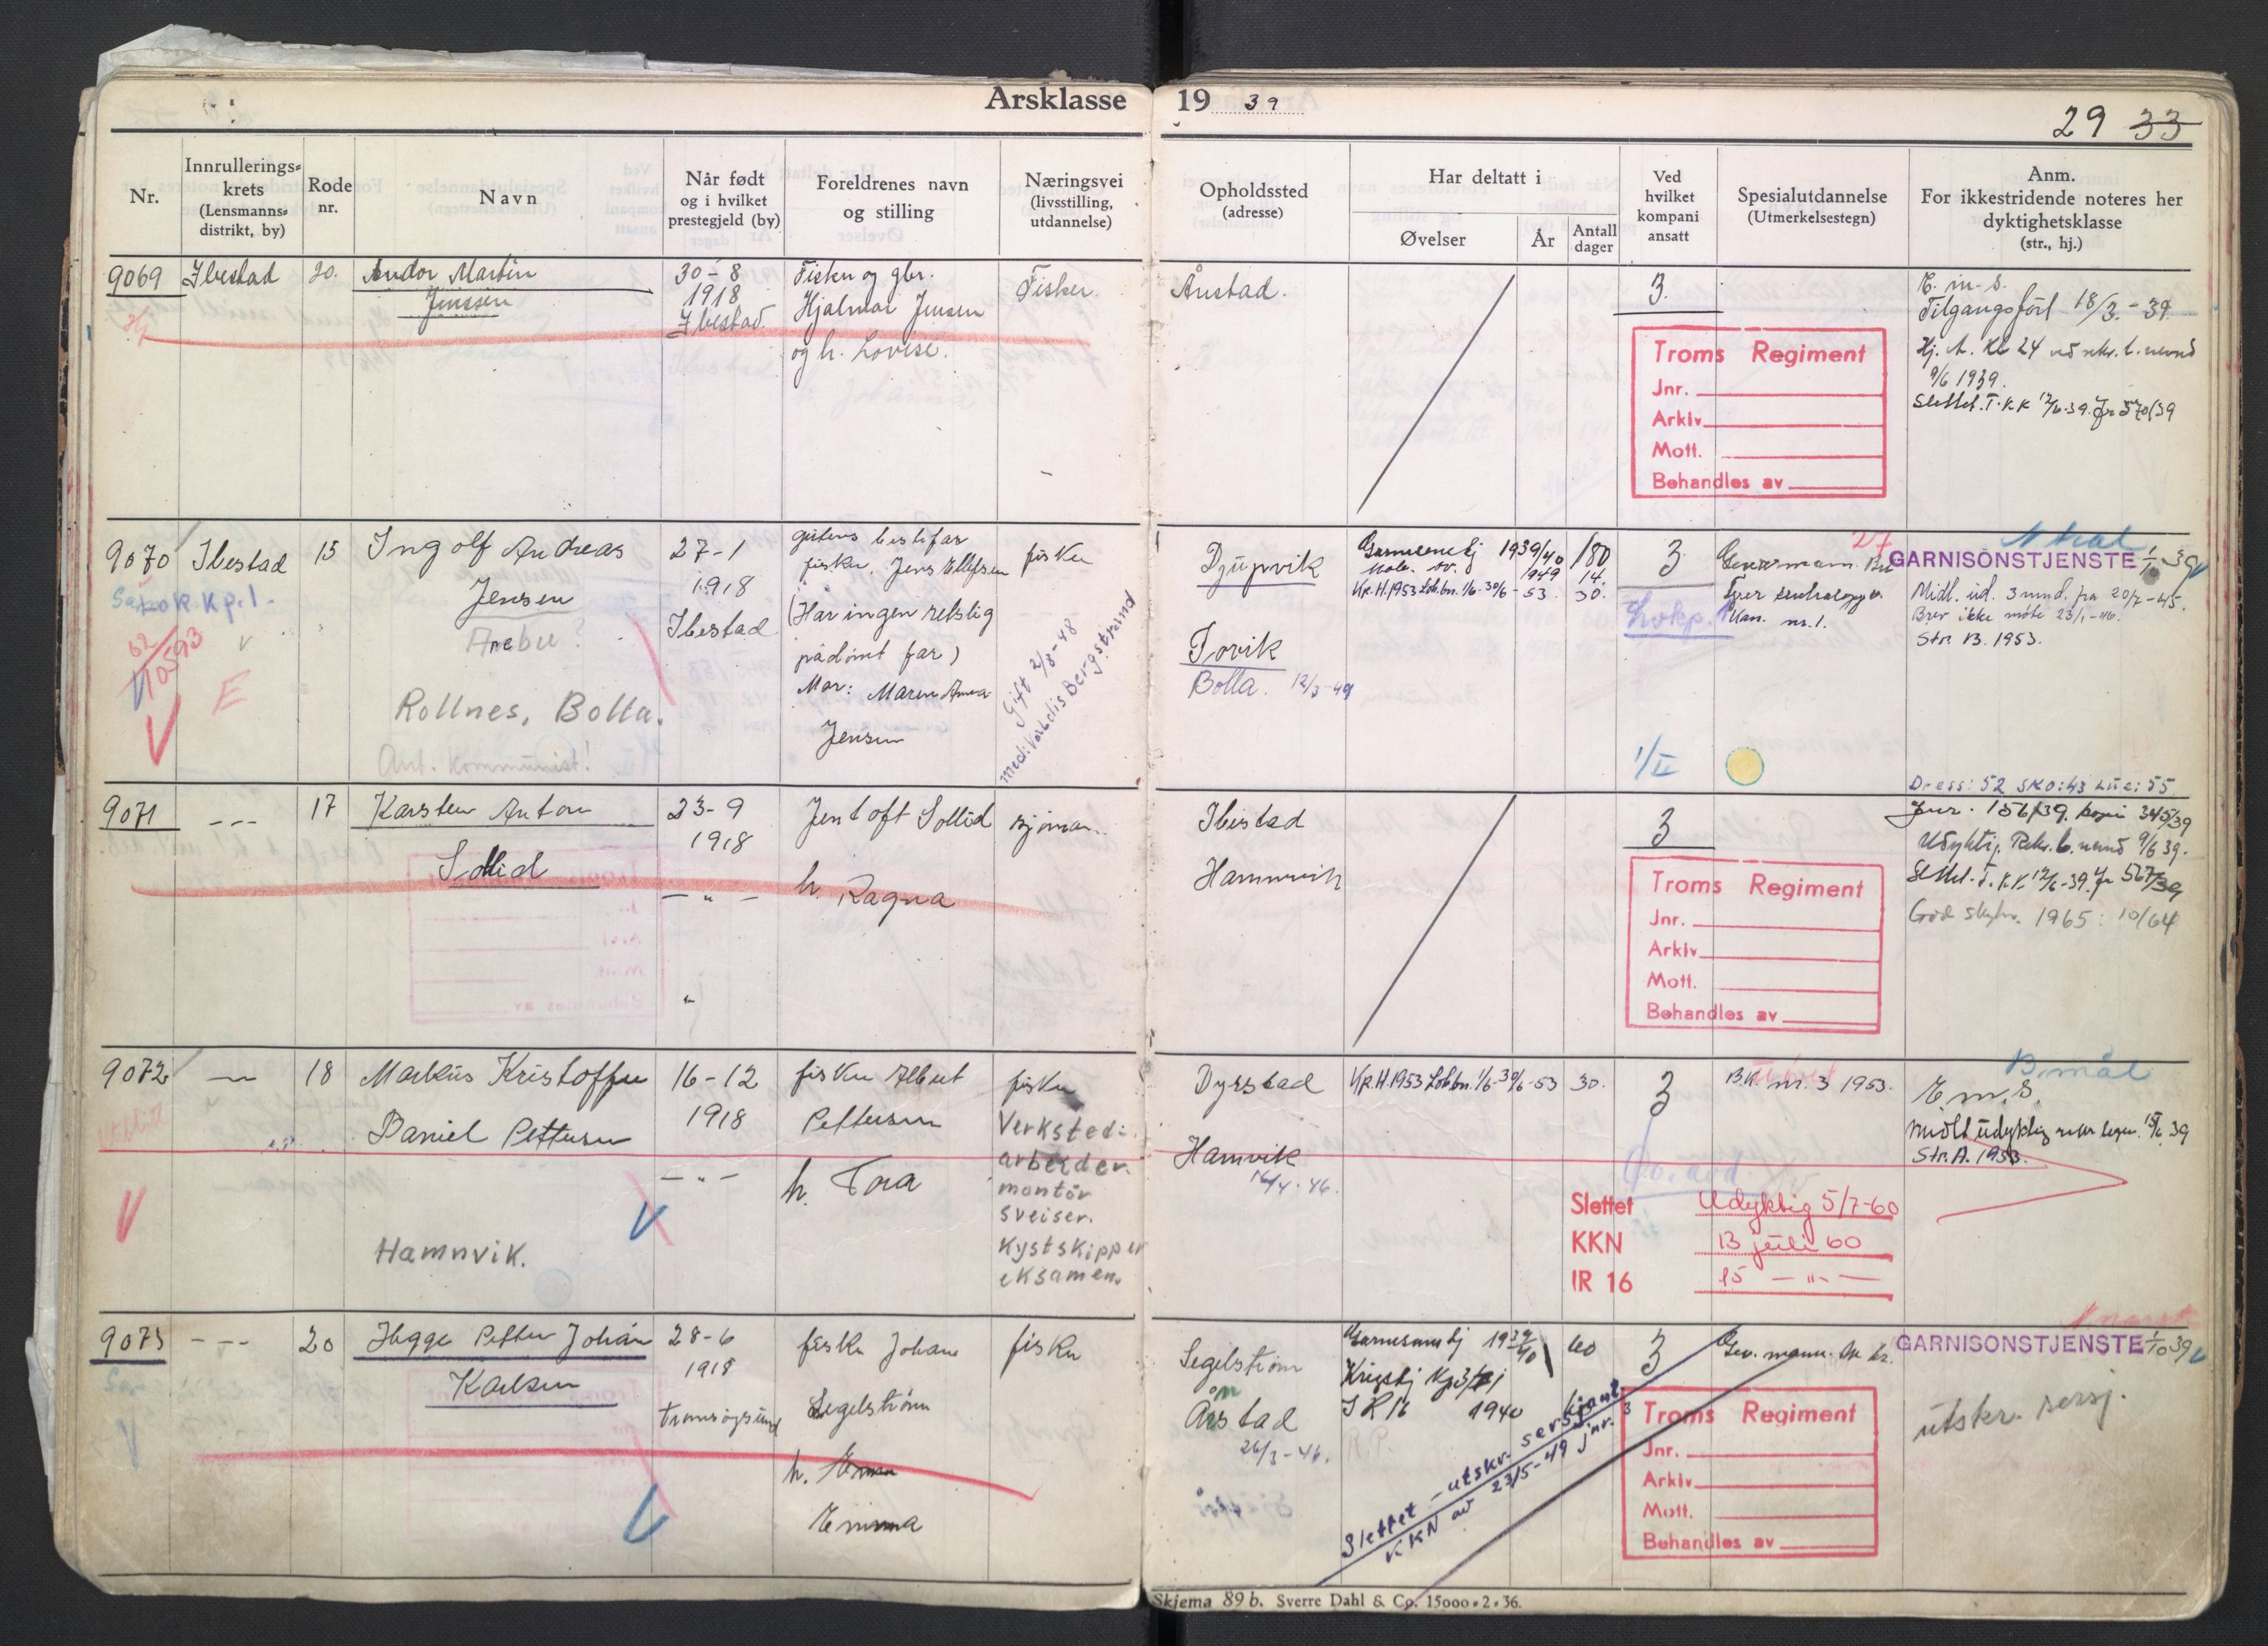 Årsklasse 19 39
29 33
Nr.
Innrullerings=
krets
(Lensmanns=
distrikt, by)
Rode
nr.
Navn
Når født
og i hvilket
prestegjeld (by)
Foreldrenes navn
og stilling
Næringsvei
(livsstilling,
utdannelse)
Opholdssted
(adresse)
Har deltatt i
Øvelser
År
Antall
dager
Ved
hvilket
kompani
ansatt
Spesialutdannelse
(Utmerkelsestegn)
Anm.
For ikkestridende noteres her
dyktighetsklasse
(str., hj.)
9069
Ibestad
20.
Andor Martin
Jenssen
30-8
1918
Ibestad
Fisker og gbr.
Hjalmar Jensen
og h. Lovise.
Fisker.
Ånstad.
3.
Tilgangsført 18/3.-39
9/6 1939.
Slettet. T.KK 12/6-39. Jr 570/39
Troms Regiment
Jnr.
Arkiv
Mott.
Behandles av
9070
Ibestad
15
Ingolf Andreas
Jensen
Rollnes, Bolla.
Ant. kommunist!
27-1
1918
Ibestad
gutens bestefar
fisker. Jens Ellefsen
(Har ingen retslig
pådømt far)
Mor: Maren Anna
Jensen
fisker
Gift 2/8-48
med: Valdis Bergstrand
Djupvik
Torvik
Bolla. 12/3-49
Garnisonstj 1939/40 180
Mob. øv. 1949 14.
Kp.H.1953 Lokbn. 1/6-30/6-53. 30.
3
1/II
Kan. nr. 1.
GARNISONSTJENSTE 1/10 39
Midl. ud. 3 mnd. fra 20/7-45.
Brev ikke møte 23/1-46.
Str. B. 1953.
Dress: 52 Sko: 43 Lue: 55
62
10593
E
9071
17
Karsten Anton
Sollid
23-9
1918
Jentoft Sollid
h. Ragna
sjømann.
Ibestad
Hamnvik
3
Jnr. 156/39. kopi 345/39
Udyktig. Rekr. b. nevnd 9/6 39.
Slettet. T.KK 12/6-39. Jr 567/39
God skytter. 1965: 10/64
Troms Regiment
Jnr.
Arkiv
Mott.
Behandles av
9072
18
Markus Kristoffer
Daniel Pettersen
Hamnvik.
16-12
1918
fisker Albert
Pettersen
h. Tora
fisker
Verksted-
arbeider.
montör
sveiser.
Kystskipper
eksamen.
Dyrstad
Hamvik
16/4-46.
Kp.H.1953 Lokbn. 1/6-30/6-53 30.
3
BK nr. 3 1953.
E.m.S.
Str. A. 1953.
Slettet Udyktig 5/7-60
KKN 13 juli 60
IR 16 15 — " —
9073
20
Hegge Petter Johan
Karlsen
28-6
1918
Tranøysund
fisker Johan
Segelstrøm
h. Emma
Emma
fisker
Segelstrøm
Årstad
26/3-46.
Garnisonstj 1939/40 60
Krigstj Kp 3/II
IR 16 1940
3
Slettet - utskr. sersjant
KKN av 23/5-49 jnr. 3
GARNISONSTJENSTE 1/10 39
utskr. sersj.
Troms Regiment
Jnr.
Arkiv
Mott.
Behandles av
Skjema 89 b. Sverre Dahl & Co. 15000-2-36.